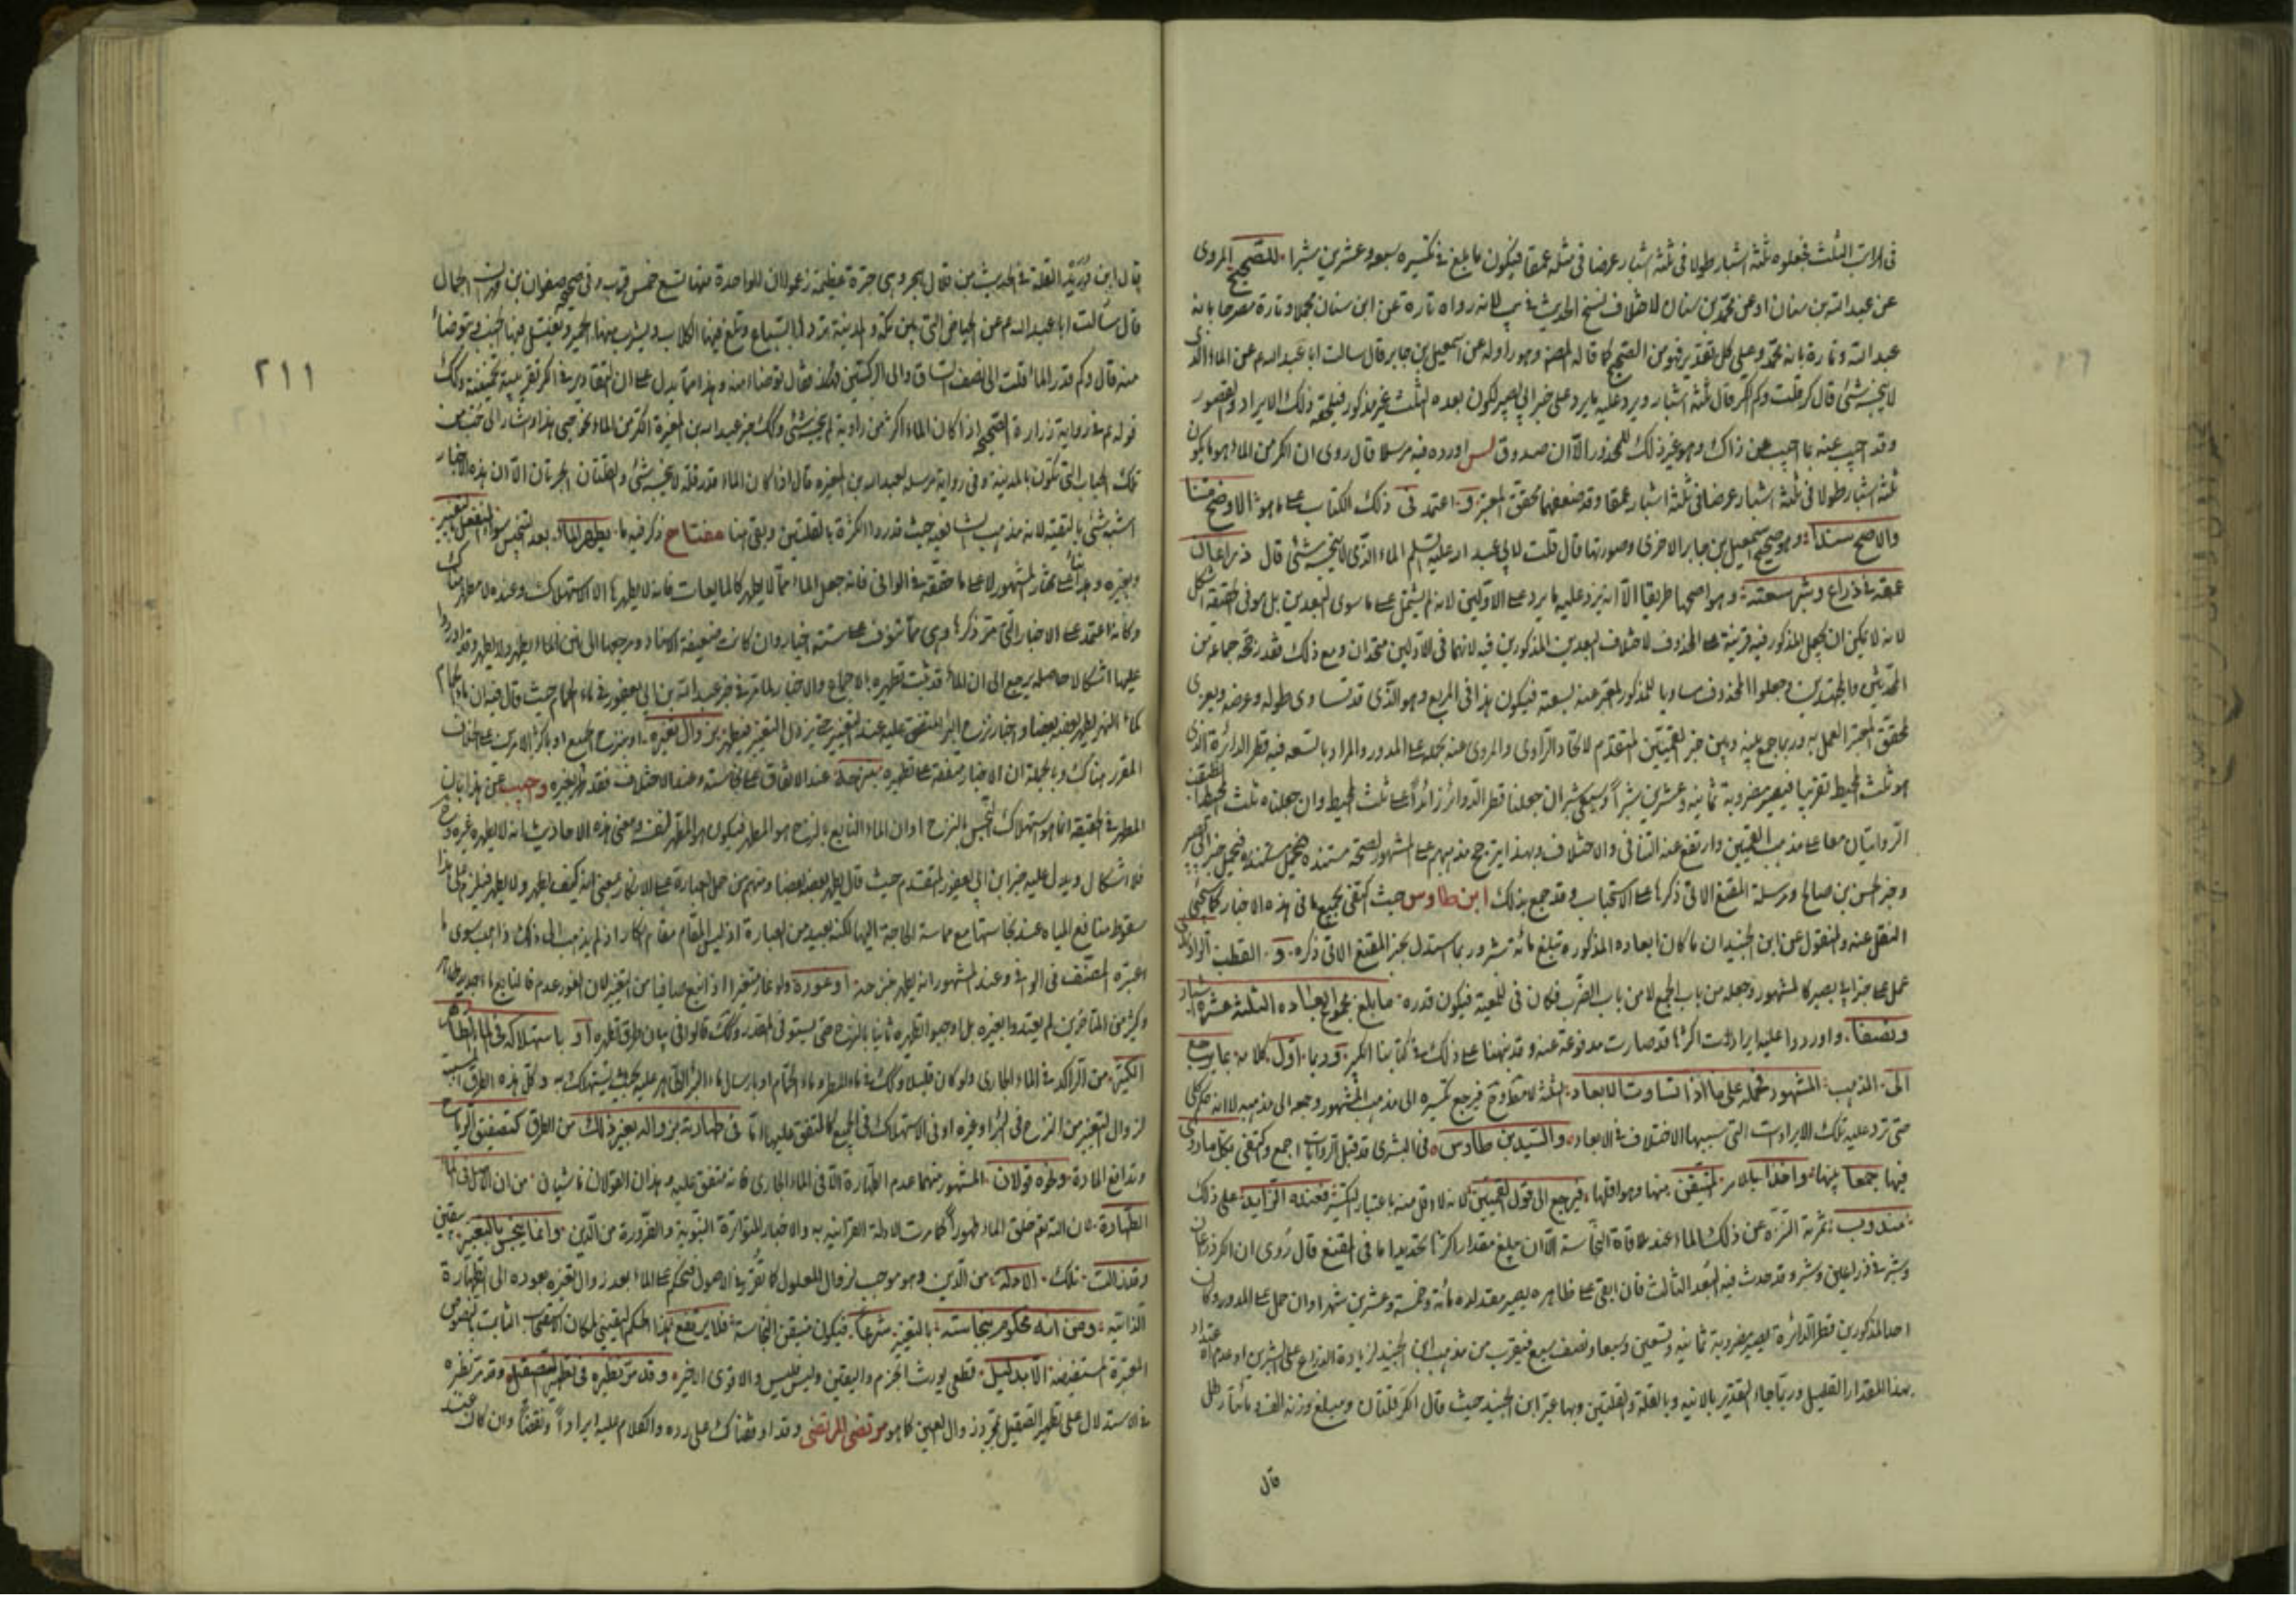 فى المراتب الثلث فجعلوه ثلثة اشبار طولا فى ثلثة اشبار عرضا فى مثله عمقا فيكون ما بلغ فى تكسيره سبعه وعشرين شبرا للصحيح المروى
عن عبد الله بن سنان او عن محمد بن سنان لاختلاف نسخ الحديث فى يب لانه رواه تارة عن ابن سنان مجملا وتارة مصرحا بانه
عبد الله وتارة بانه محمد وعلى كل تقدير فهو من الصحيح كما قاله المص وهو راو له عن اسمعيل بن جابر قال سالت ابا عبد الله ع عن الماء الذى
لا ينجسه شئ قال كر قلت وكم الكر قال ثلثة اشبار ويرد عليه ما يرد على خبر ابى بصير لكون بعده الثلث غير مذكور فيلحقه ذلك الايراد والقصور
وقد اجيب عنه بما اجيب عن ذاك وهو غير ذلك المحذور الا ان صدوق لس اورده فيه مرسلا قال روى ان الكر من الماء هو ما يكون
ثلثة اشبار طولا فى ثلثة اشبار عرضا فى ثلثة اشبار عمقا وقد ضعفهما محقق المعتبر و اعتمد فى ذلك الكتاب على ما هو الاوضح متنا
والاصح سندا وهو صحيح اسمعيل بن جابر الاخرى وصورتها قال قلت لابى عبد الله عليه السلم الماء الذى لا ينجسه شئ قال ذراعان
عمقه فى ذراع وشبر سعته وهو اصحها طريقا الا انه يزد عليه ما يرد على الاولين لانه لم يشتمل على ما سوى البعدين بل هو فى الحقيقة اشكل
لانه لا يمكن ان يجعل المذكور فيه قرينة على المحذوف لاختلاف البعدين المذكورين فيه لانهما فى الاولين متحدان ومع ذلك فقد رجحه جماعه من
المحدثين والمجتهدين وجعلوا المحذوف مساويا للمذكور المعبر عنه بسعته فيكون هذا فى المربع وهو الذى قد تساوى طوله وعرضه ويعزى
لمحقق المعتبر العمل به وربما جمع بينه وبين خبر القميين المتقدم لاتحاد الراوى والمروى عنه بحمله على المدور والمراد بالسعه فيه قطر الدائرة الذى
هو ثلث المحيط تقريبا فيصير مضروبه ثمانيه وعشرين شبرا وسبعى شبر ان جعلنا قطر الدوائر زائدا على ثلث المحيط وان جعلناه ثلث المحيط انطبقت
الروايتان معا على مذهب القميين وارتفع عنه التنافى والاختلاف وبهذا يترجح مذهبهم على المشهور لصحة مستنده فيحمل خبر ابى بصير
وخبر الحسن بن صالح ومرسلة المقنع الاتى ذكرها على الاستحباب وقد جمع بذلك ابن طاوس حيث اكتفى بجميع ما فى هذه الاخبار كما سيجئ
النقل عنه والمنقول عن ابن الجنيد ان ما كان ابعاده المذكوره تبلغ مائة شبر وربما استدل بخبر المقنع الاتى ذكره و القطب الراوندى
عمل على خبر ابى بصير كالمشهور وجعله من باب الجمع لا من باب الضرب فكان فى القضية فيكون قدره ما بلغ مجموع ابعاده الثلثة عشرة اشبار
ونصفا واوردوا عليه ايرادات اكثرها قد صارت مدفوعة عنه وقد نبهنا على ذلك فى كتابنا الكبير و ربما اول كلامه بما يرجع
الى المذهب المشهور بحمله على ما اذا تساوت الابعاد الثلثة لا مطلقا فيرجع تكسيره الى مذهب المشهور وجمعه الى مذهبه لا انه حد كلى
حتى ترد عليه تلك الايرادات التى سببها الاختلاف فى الابعاد والسيد بن طاوس فى البشرى قد قبل الروايات اجمع واكتفى بكل ما روى
فيها جمعا بينها واخذا بالامر المتيقن منها وهو اقلها فيرجع الى قول القميين لانه لا اقل منه باعتبار الكثير فعنده الزايد على ذلك
مندوب ثمرته التنزه عن ذلك الماء عند ملاقاة النجاسة الا ان يبلغ مقدار اكثرها تحديدا ما فى المقنع قال روى ان الكر ذراعان
وشبر فى ذراعين وشبر وقد حدث فيه البعد الثالث فان ابقى على ظاهره يصير مقداره مائة وخمسة وعشرين شبرا وان حمل على المدور وكان
احد المذكورين قطر الدائرة يصير مضروبه ثمانية وتسعين وسبعا ونصف سبع فيقرب من مذهب ابن الجنيد لزيادة الذراع على الشبرين او عدم اعتداد
بهذا المقدار القليل وربما جاء التقدير بالانيه وبالقلة والقلتين وبها عبر ابن الجنيد حيث قال الكر قلتان ومبلغ وزنه الف ومائتا رطل
قال
قال ابن دريد القلة فى الحديث من قلال هجر وهى جرة عظيمة زعموا ان الواحدة منها تسع خمس قرب وفى صحيح صفوان بن مهران الجمال
قال سالت ابا عبد الله ع عن الحياض التى بين مكة والمدينة تردها السباع وتلغ فيها الكلاب ويشرب منها الحمير ويغتسل فيها الجنب ويتوضأ
منه قال وكم قدر الماء قلت الى نصف الساق والى الركبتين فقال توضاء منه وهذا مما يدل على ان التقادير فى الكر تقريبية تخمينية وكك
قوله ع فى رواية زرارة الصحيح اذا كان الماء اكثر من راوية لم ينجسه شئ وكك خبر عبد الله بن المغيرة الكر من الماء نحو حبى هذا واشار الى حب من
تلك الحباب التى تكون بالمدينة وفى رواية مرسله لعبد الله بن المغيره قال اذا كان الماء قدر قلتين لم ينجسه شئ والقلتان الجرتان الا ان هذه الاخبار
اشبه شئ بالتقية لانه مذهب الشافعيه حيث قدروا الكثرة بالقلتين وبقى هنا مفتاح ذكر فيه ما يطهر الماء بعد التنجس سواء انفعل بالتغيير
وبغيره وهذا بناء على مختار المشهور لا على ما حققه فى الوافى فانه جعل الماء مما لا يطهر كالمايعات فانه لا يطهرها الا الاستهلاك وعنده لا مطهر هناك
وكانه اعتمد على الاخبار التى مر ذكرها وهى مما تنوف على ستة اخبار وان كانت ضعيفة الاسناد ومرجعها الى ان الماء يطهر ولا يطهر وقد اوردوا
عليها اشكالا حاصله يرجع الى ان الماء قد ثبت تطهيره بالاجماع والاخبار لما مر فى خبر عبد الله بن ابى يعفور فى ماء الحمام حيث قال فيه ان ماء الحمام
كماء النهر يطهر بعضه بعضا واخبار نزح البئر المتفق عليه عند التغيير حتى يزول التغير فيطهر بزوال تغيره او بنزح الجميع او باكثر الامرين على الخلاف
المقرر هناك وبالجملة ان الاخبار متفقة على تطهيره بنزحه عند الاتفاق على نجاسته وعند الاختلاف فقد طهر بغيره واجيب عن هذا بان
المطهر فى الحقيقة انما هو استهلاك النجس بالنزح او ان الماء النابع بالنزح هو المطهر فيكون هو المطهر لنفسه ومعنى هذه الاحاديث انه لا يطهره غيره
فلا اشكال ويدل عليه خبر ابن ابى يعفور المتقدم حيث قال يطهر بعضه بعضا ومنهم من حمل العبارة على الانكار بمعنى انه كيف يطهر ولا يطهر فيلزم على هذا
سقوط منافع المياه عند نجاستها مع مماسة الحاجة اليها لكنه بعيد من العبارة اذ ليس المقام مقام انكار اذ لم يذهب الى ذلك ذاهب سوى ما
اعتبره المصنف فى الوافى وعند المشهور انه يطهر بنزحه او غوره ولو غار متغيرا اذا نبع صافيا من التغير لان الغور عدم فالنابع ماء جديد طاهر
وكثير من المتاخرين لم يعتدوا بغيره بل اوجبوا تطهيره ثانيا بالنزح حتى يستوفى المقدر وكك قالوا فى بيان طرق تطهيره او باستهلاكه فى الماء الطاهر
الكثير من الراكد فى الماء الجارى ولو كان قليلا وكك فى ماء المطر وماء الحمام او بارسال ماء البئر الطاهر عليه بحيث يستهلك به وكل هذه الطرق
لزوال التغير من النزح فى البئر وغيره او فى الاستهلاك فى الجميع كالمتفق عليها اما فى طهارته بزواله بغير ذلك من الطرق كتصفيق الرياح
وتدافع المادة ونحوه قولان المشهور منهما عدم الطهارة الا فى الماء الجارى فانه متفق عليه وهذان القولان ناشيان من ان الاصل فى الماء
الطهارة لان الله تع خلق الماء طهورا كما مرت الادلة القرآنية به والاخبار المتواترة النبوية والضرورة من الدين وانما ينجس بالتغير بيقين
وقد زالت تلك الادلة من الدين وهو موجب لزوال المعلول كما تقرر فى الاصول فيحكم على الماء بعد زوال تغيره بعوده الى الطهارة
الذاتيه ومن انه محكوم بنجاسته بالتغير شرعا فيكون متيقن النجاسة فلا يرتفع هذا الحكم اليقينى لمكان الاستصحاب الثابت بالنصوص
المعتبرة المستفيضه الا بدليل قطعى يورث الجزم واليقين وليس فليس والاقوى الاخير وقد مر نظيره فى تطهير الصيقل وقد مر نظيره
فى الاستدلال على تطهير الصقيل بمجرد زوال العين كما هو مرتضى المرتضى وقد اوقفناك على رده والكلام عليه ايرادا ونقضا وان كان عند
٢١١